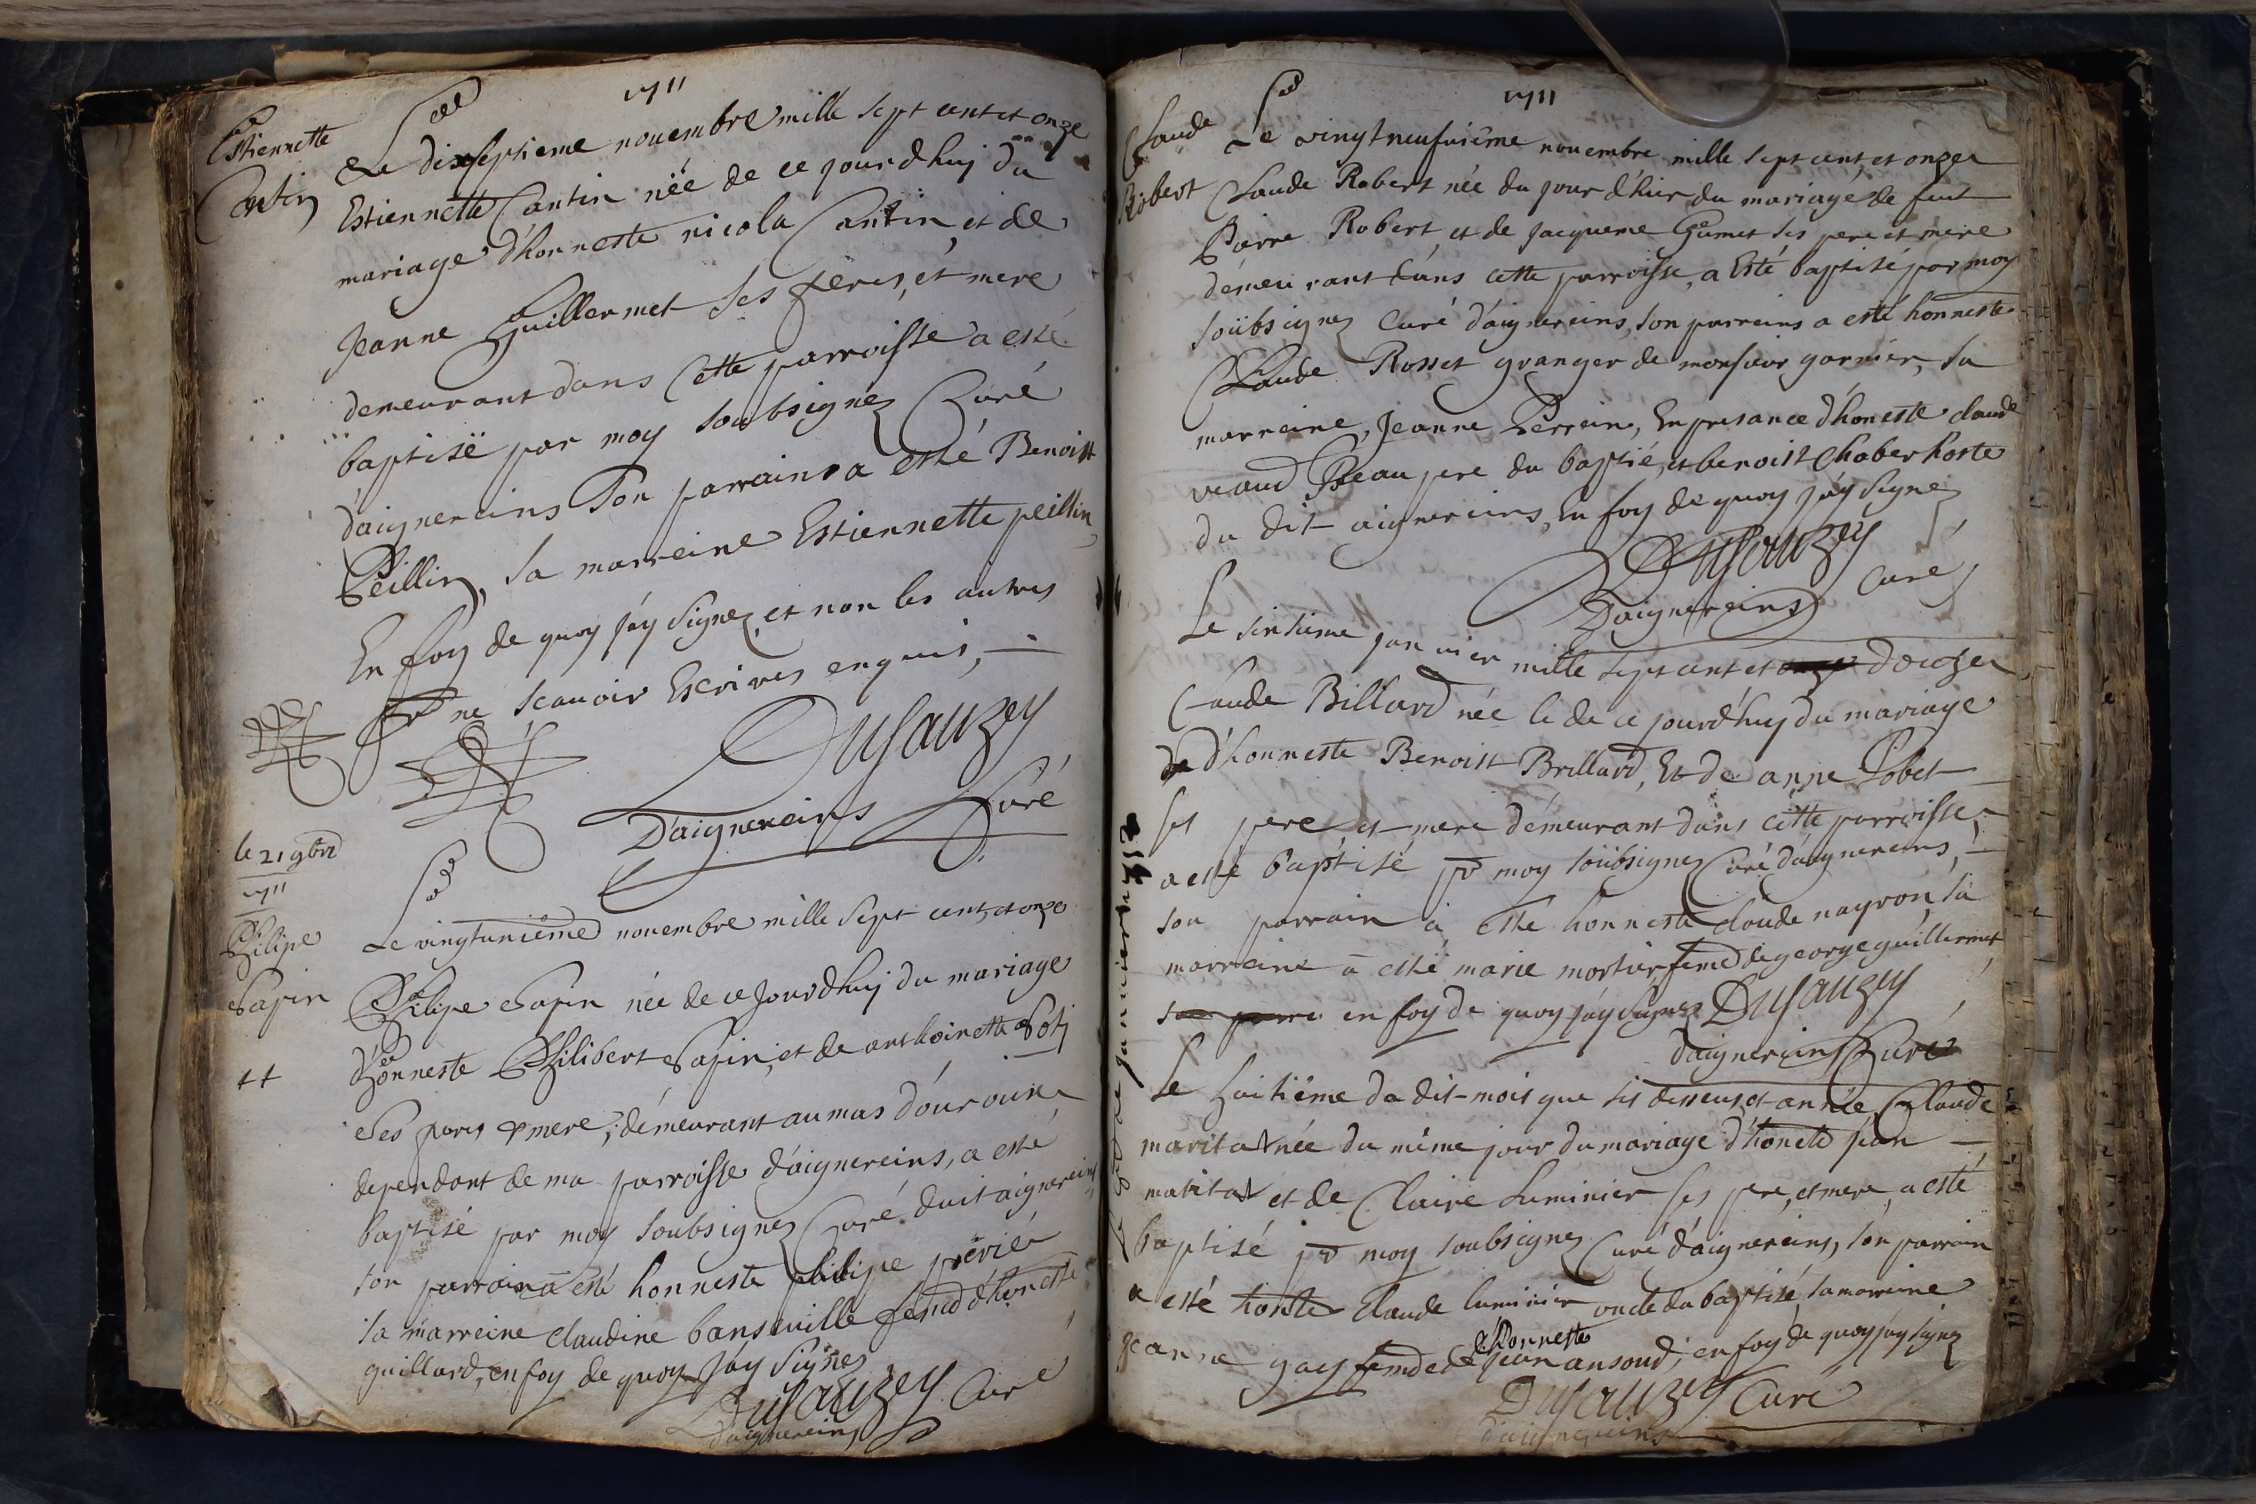 1711
Estiennette
Cantin
Le dixseptieme nouembre mille sept cent et onze
Estiennette Cantin née de ce jourdhuj du
mariage d'honneste nicola Cantin, et de
Jeanne Guillermet ses peres, et mere
demeurant dans Cette parroisse a esté
baptisë par moy soubsignéz Curé
d'aignereins son parrains a esté Benoist
Peillin, sa marreine Estiennette peillin
En foy de quoy j'ay signez et non les autres
ne scauoir Escrires enquis,
Dusauzey
D'aignereins Curé
le 21 9bre
1711
Philipe
Sapin
Le vingtunième nouembre mille sept cent et onze
Philipe Sapin née de ce Jourdhuj du mariage
d'honneste Philibert Sapin, et de anthoinette
ses peres & mere, démeurant au mas d'ouroux
dependant de ma parroisse d'aignereins, a esté
baptisé par moy soubsignez Curé dudit aignereins
son parrain a esté honneste philipe
sa marreine claudine banseuille feme d'honeste
guillard, en foy de quoy j'ay signez
Dusauzey Curé
d'aignereins
1711
Claude
Robert
Le vingtneufuiéme nouembre mille sept cent et onze
Claude Robert née du jour d'hier du mariage de feut
Pierre Robert et de jacqueme Gumet ses pere et mere
démeurant dans cette parroisse, a Esté baptisé par moy
soübsignez Curé d'aignereins, son parreins a esté honneste
Claude Rosset granger de monsieur garnier, sa
marreine, Jeanne Perrein, En presance d'honeste claude
veaud Beaupere du baptié, et benoist Chaber hoste
du dit aignereins, En foy de quoy j'ay signez
Dusauzey
D'aignereins Curé
Le sixsieme januier mille sept cent et onze douze
Claude Billard née le de ce jourd'huy du mariage
de d'honneste Benoist Brillard, Et de anne Pobet
ses pere et mere démeurant dans cette parroisse,
a esté baptisé pr moy soübsignez Curé d'aignereins,
son parrain à esté honneste claude nayron sa
marreine à esté marie mortier feme de george guillermet
en foy de quoy j'ay signez Dusauzey
d'aignereins Curé
Le huitiéme du dit mois que sis dessus, et année, Claude
née du méme jour du mariage d'honete jean
et de Claire Luminier ses pere, et mere, a esté
baptisé pr moy soubsignez Curé d'aignereins, son parrain
a esté honte Claude luminier oncle du baptisé, sa marreine
jeanne gay feme de d'honneste jean ansoud, en foy de quoy j'ay signez
Dusauzey Curé
d'aignereins